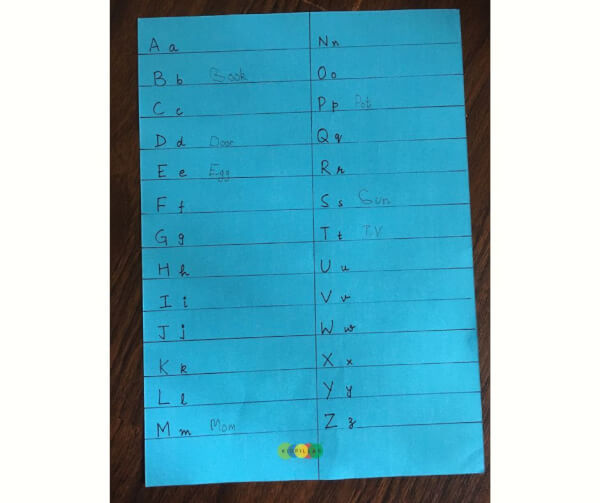 A a
B b Book
C c
D d Door
E e Egg
F f
G g
H h
I i
J j
K k
L l
M m Mom
N n
O o
P p Pot
Q q
R r
S s Sun
T t T.V
U u
V v
W w
X x
Y y
Z z
KIDPILLAR